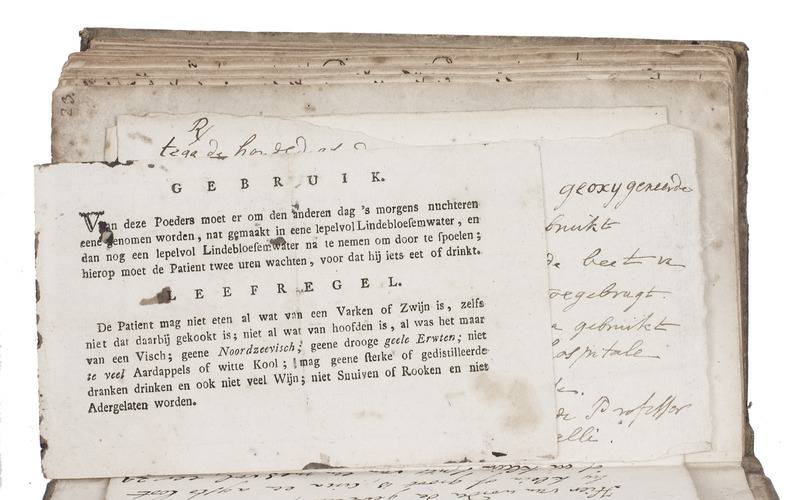 23.
R/
tega de honded
GEBRUIK.
Van deze Poeders moet er om den anderen dag 's morgens nuchteren
eene genomen worden, nat gemaakt in eene lepelvol Lindebloesemwater, en
dan nog een lepelvol Lindebloesemwater na te nemen om door te spoelen;
hierop moet de Patient twee uren wachten, voor dat hij iets eet of drinkt.
LEEFREGEL.
De Patient mag niet eten al wat van een Varken of Zwijn is, zelfs
niet dat daarbij gekookt is; niet al wat van hoofden is, al was het maar
van een Visch; geene Noordzeevisch; geene drooge geele Erwten; niet
te veel Aardappels of witte Kool; mag geene sterke of gedistilleerde
dranken drinken en ook niet veel Wijn; niet Snuiven of Rooken en niet
Adergelaten worden.
geoxygeneerde
bruikt
de beet
oegebragt.
a gebruikt
ospitale
de Professor
elli.